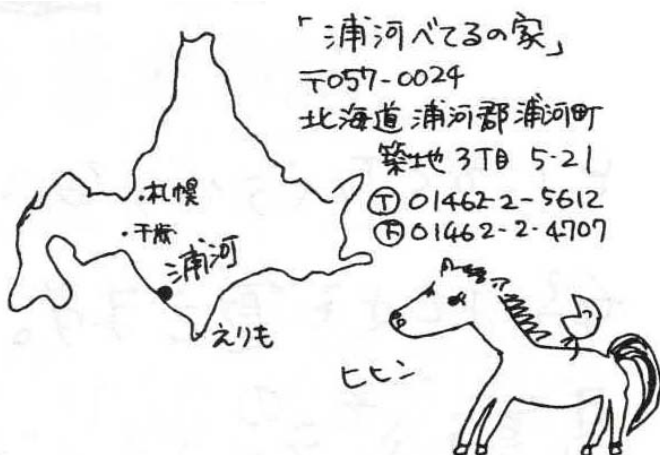 「浦河べてるの家」
〒057-0024
北海道浦河郡浦河町
築地3丁目 5-21
Ⓣ01462-2-5612
Ⓕ01462-2-4707
・札幌
・千歳
浦河
えりも
ヒヒン